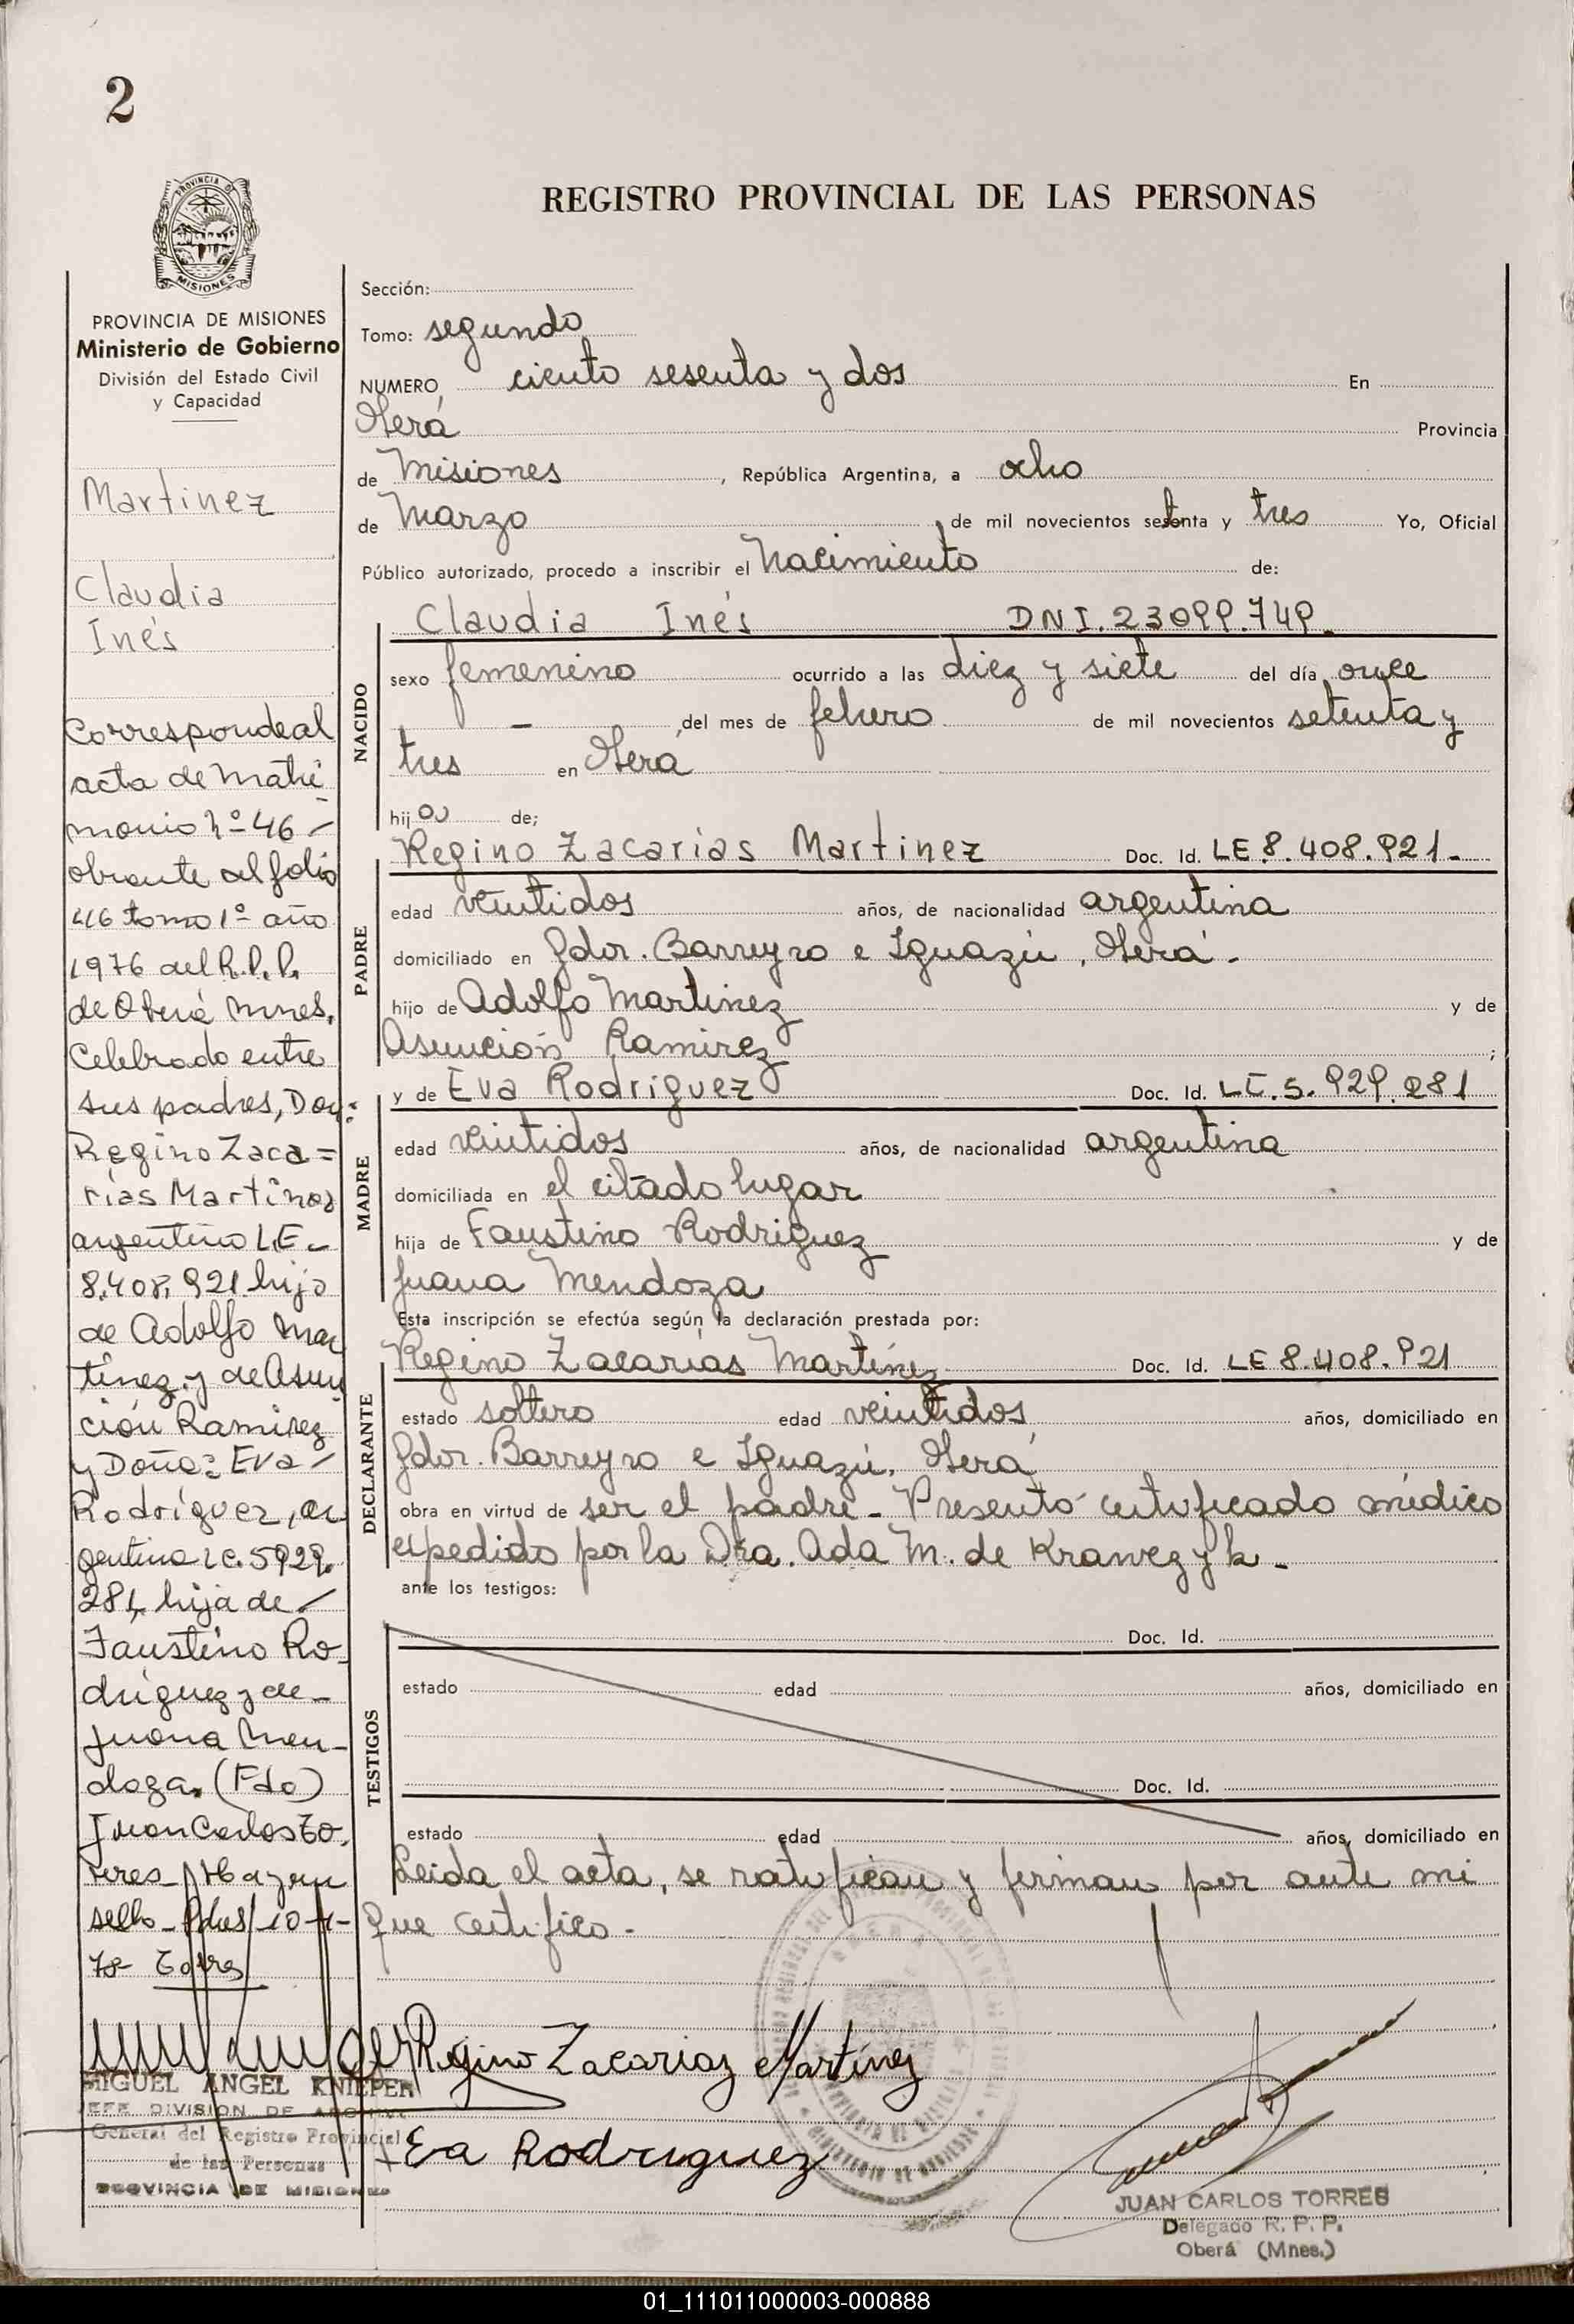 2
REGISTRO PROVINCIAL DE LAS PERSONAS
PROVINCIA DE
MISIONES
PROVINCIA DE MISIONES
Ministerio de Gobierno
División del Estado Civil
y Capacidad
Martinez
Claudia
Inés
Corresponde al
acta de Matri
monio nº 46 -
obrante al folio
46 tomo 1º año
1976 del R.P.P.
de Oberá Mnes.
Celebrado entre
sus padres, Don:
Regino Zaca=
rías Martinez
argentino L.E -
8.408.921 hijo
de Adolfo Mar
tinez y de Asun
ción Ramirez
y Doña: Eva -
Rodríguez, ar
gentina LC. 5929.
281, hija de -
Faustino Ro-
driguez y de -
Juana Men-
doza. (Fdo)
Juan Carlos To.
rres - Hay un
sello - Pdas/ 10-
78- Torres
MIGUEL ANGEL KNIEPER
JEFE DIVISION DE ARCHIVO
General del Registro Provincial
de las Personas
PROVINCIA DE MISIONES
Sección:
Tomo: segundo
NUMERO ciento sesenta y dos En
Oberá Provincia
de Misiones, República Argentina, a ocho
de Marzo, de mil novecientos setenta y tres Yo, Oficial
Público autorizado, procedo a inscribir el Nacimiento de:
Claudia Inés DNI. 23099.749.
NACIDO
sexo femenino ocurrido a las diez y siete del día once
- del mes de febrero de mil novecientos setenta y
tres en Oberá
hija de;
Regino Zacarias Martinez Doc. Id. LE 8.408.921.-
PADRE
edad veintidos años, de nacionalidad argentina
domiciliado en Gdor. Barreyro e Iguazú, Oberá.-
hijo de Adolfo Martinez y de
Asunción Ramirez;
y de Eva Rodriguez Doc. Id. LC. 5. 929. 281
MADRE
edad veintidos años, de nacionalidad argentina
domiciliada en el citado lugar
hija de Faustino Rodriguez y de
Juana Mendoza
Esta inscripción se efectúa según la declaración prestada por:
Regino Zacarías Martinez Doc. Id. LE 8.408.921
DECLARANTE
estado soltero edad veintidos años, domiciliado en
Gdor. Barreyro e Iguazú. Oberá
obra en virtud de ser el padre - Presentó certificado médico
expedido por la Dra. Ada M. de Krawczyk -
ante los testigos:
Doc. Id.
TESTIGOS
estado edad años, domiciliado en
Doc. Id.
estado edad años, domiciliado en
Leida el acta, se ratifican y firman por ante mi
que certifico -
Regino Zacariaz Martínez
Eva Rodriguez
JUAN CARLOS TORRES
Delegado R. P. P.
Oberá (Mnes.)
01_111011000003-000888